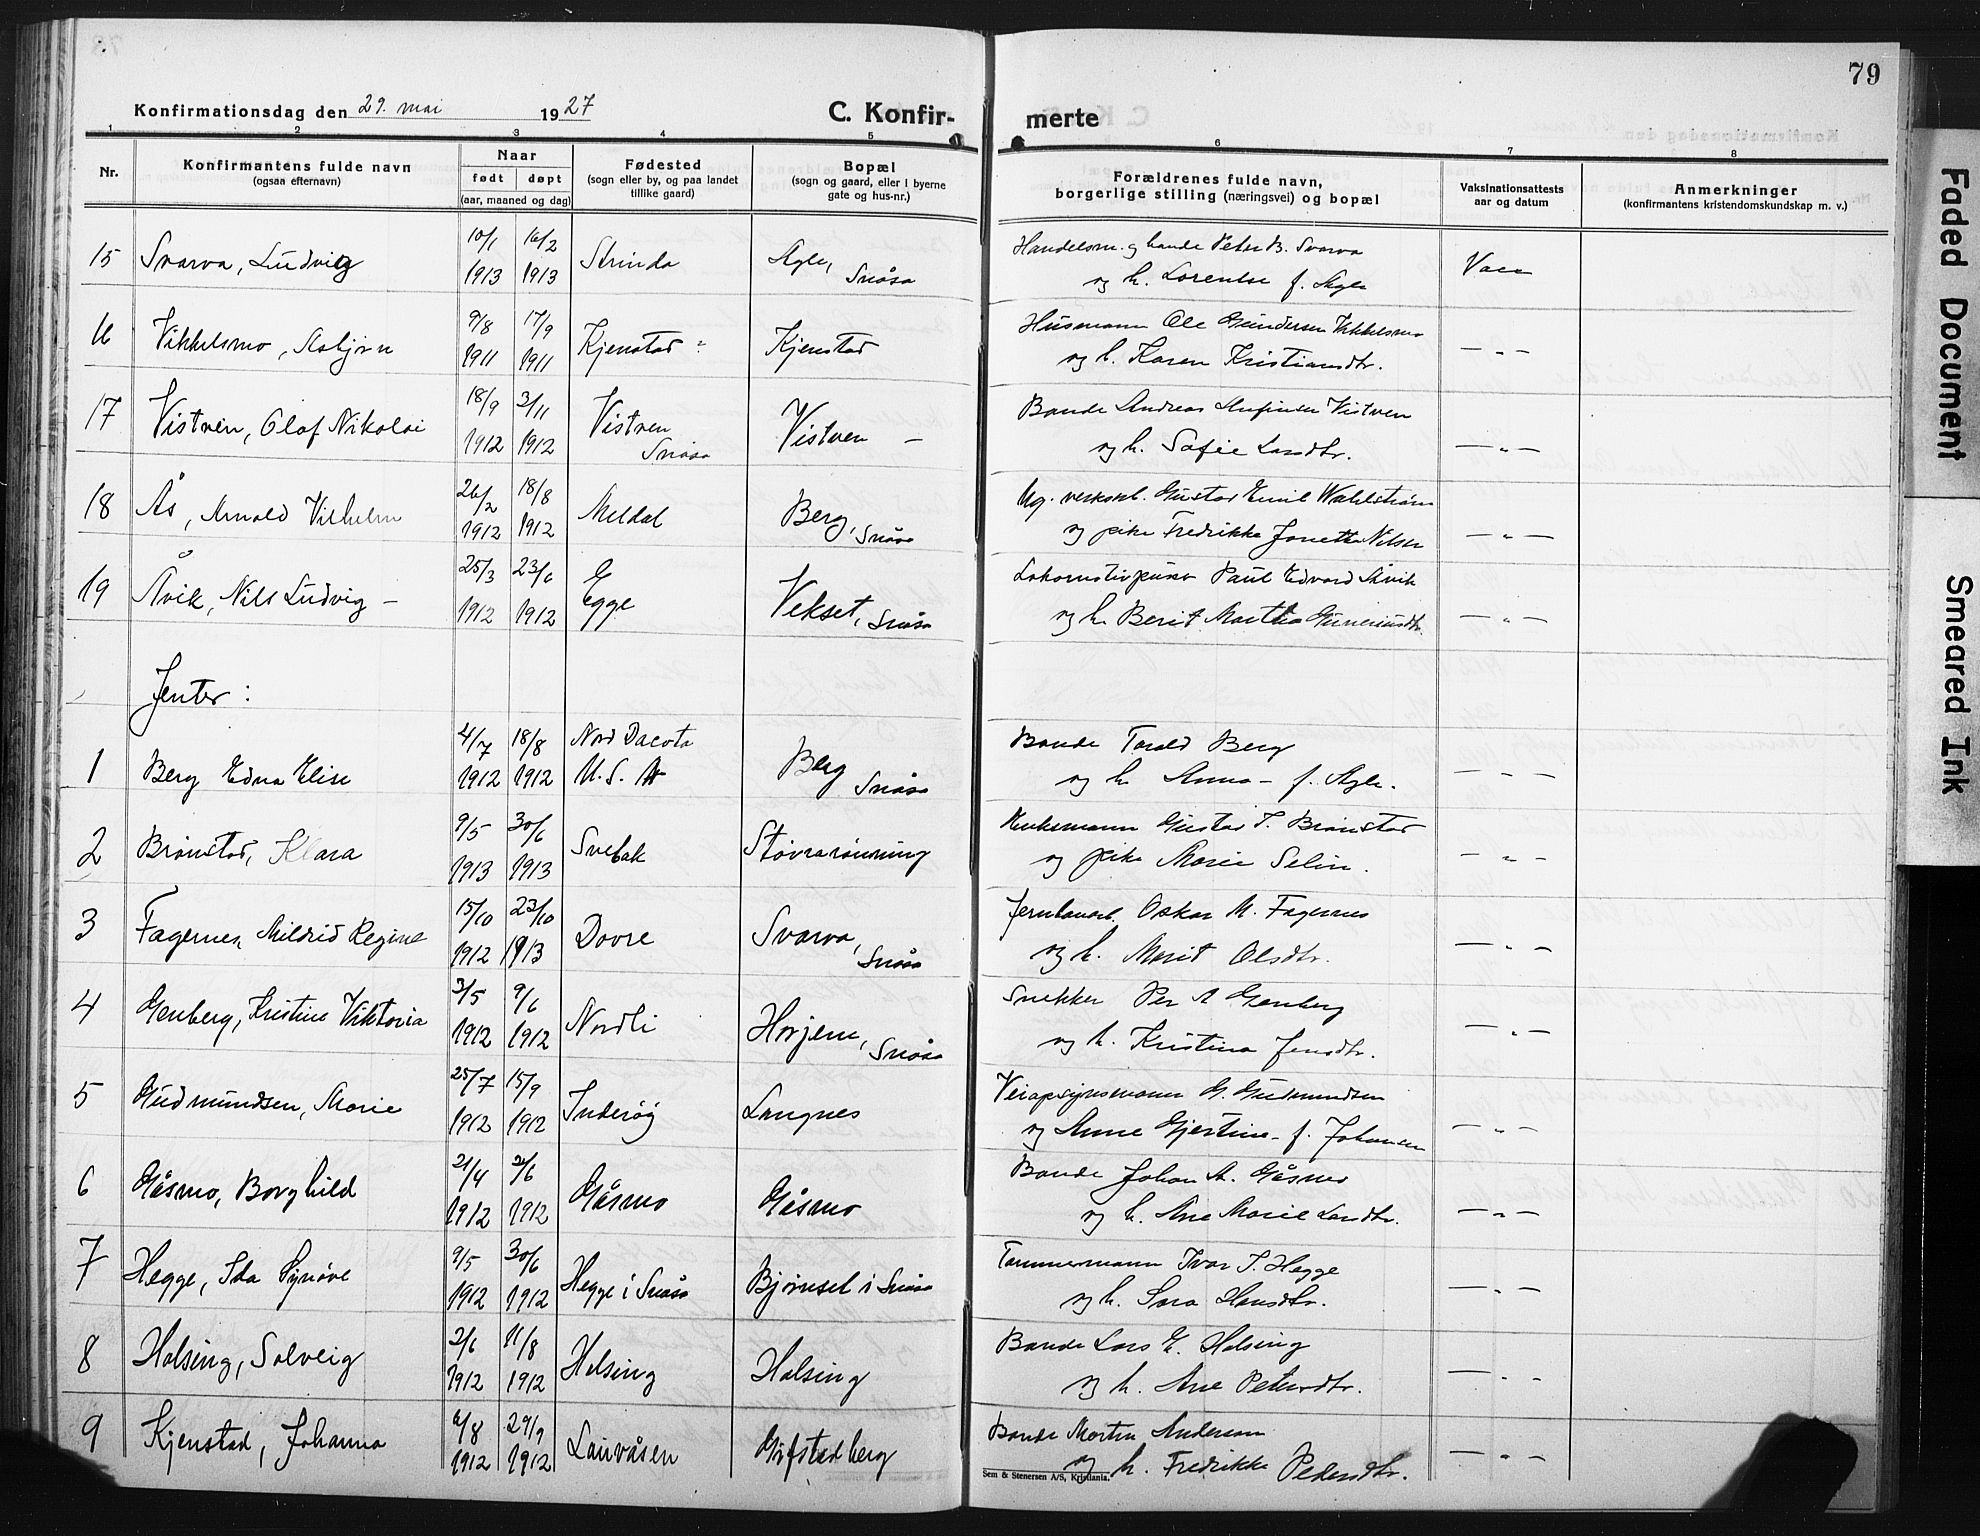 79
Konfirmationsdag den 29. mai 1927
C. Konfir-
merte
1 2 3 4 5 6 7 8
Nr.
Konfirmantens fulde navn
(ogsaa efternavn)
Naar
født døpt
(aar, maaned og dag)
Fødested
(sogn eller by, og paa landet
tillike gaard)
Bopæl
(sogn og gaard, eller i byerne
gate og hus-nr.)
Forældrenes fulde navn,
borgerlige stilling (næringsvei) og bopæl
Vaksinationsattests
aar og datum
Anmerkninger
(konfirmantens kristendomskundskap m. v.)
15 Svarva, Ludvig 10/1 1913 16/2 1913 Strinda Agle, Snåsa
Handelsm. g bande Peter B. Svarva
og h. Lorentse f. Agle
Vacc
16 Vikkelsmo, Asbjørn 9/8 1911 17/9 1911 Kjenstad Kjenstad
Husmann Ole Gundersen Vikkelsmo
og h. Karen Kristiansdtr. — „ —
17 Vistven, Olaf Nikolai 18/9 1912 3/11 1912 Vistven Snåsa Vistven —
Bonde Andreas Arnfinsen Vistven
og h. Sofie Larsdtr. — „ —
18 Ås, Arnold Vilhelm 26/2 1912 18/8 1912 Meldal Berg, Snåsa
Ug. Gustav Emil Wahlstrøm
og pike Fredrikke Jonette Nilsen — „ —
19 Åvik, Nils Ludvig — 25/3 1912 23/6 1912 Egge Vekset, Snåsa
Lokomotivpuss Paul Edvard Åvik
og h. Berit Martha — „ —
Jenter :
1 Berg Edna Elise 4/7 1912 18/8 1912 Nord Dacota U. S. A Berg Snåsa
Bonde Torald Berg
og h. Anna — f. Agle. — „ —
2 Brønstad, Klara 9/5 1913 30/6 1913 Svebak Støvrarønning
Gustav T. Brønstad
og pike Marie Selin. — „ —
3 Fagernes, Mildrid Regine 15/10 1912 23/10 1913 Dovre Svarva, Snåsa
Jernbanarb. Oskar M. Fagernes
og h. Marit Olsdtr. — „ —
4 Genberg, Kristine Viktoria 3/5 1912 9/6 1912 Nordli Horjem, Snåsa
Snekker Per A Genberg
og h. Kristina Jensdtr. — „ —
5 Gudmundsen, Marie 25/7 1912 15/9 1912 Inderøy Langnes
Veiopsynsmann G. Gudmundsen
og Anne Gjertine — f. Johansen — „ —
6 Gåsmo, Borghild 21/4 1912 2/6 1912 Gåsmo Gåsmo
Bonde Johan A. Gåsmo
og h. Ane Marie Larsdtr. — „ —
7 Hegge, Ida Synøve 9/5 1912 30/6 1912 Hegge i Snåsa Bjørnsel i Snåsa
Tømmermann Ivar J. Hegge
og h. Sara Hansdtr. — „ —
8 Holsing, Solveig 2/6 1912 11/8 1912 Holsing Holsing
Bonde Lars E. Holsing
og h. Ane Petersdtr. — „ —
9 Kjenstad, Johanna 6/8 1912 29/9 1912 Lauvåsen Gifstadberg
Bonde Morten Andersen
og h. Fredrikke Pedersdtr. — „ —
Sem & Stenersen A/S, Kristiania.
Faded Document
Smeared Ink